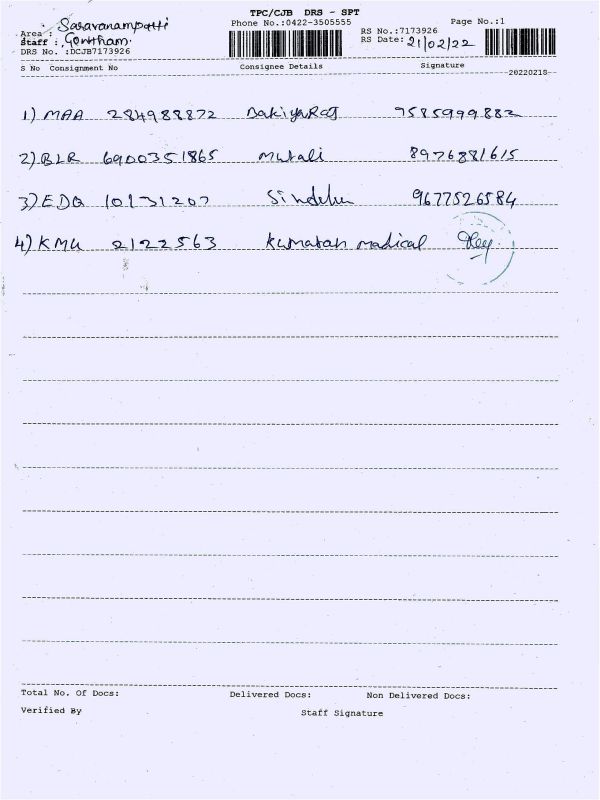 TPC/CJB DRS - SPT
Phone No.:0422-3505555 Page No.:1
Area : Saravanampatti RS No.:7173926
Staff : Gowtham. RS Date: 21/02/22
DRS No. :DCJB7173926
S No Consignment No Consignee Details Signature
20220218
1) MAA 284988872 BakiyaRaj 7585999882
2) BLR 6900351865 Murali 8976881615
3) EDQ 101731207 Sindhu 9677526584
4) KMU 2122563 Kumaran madical
Total No. Of Docs: Delivered Docs: Non Delivered Docs:
Verified By Staff Signature